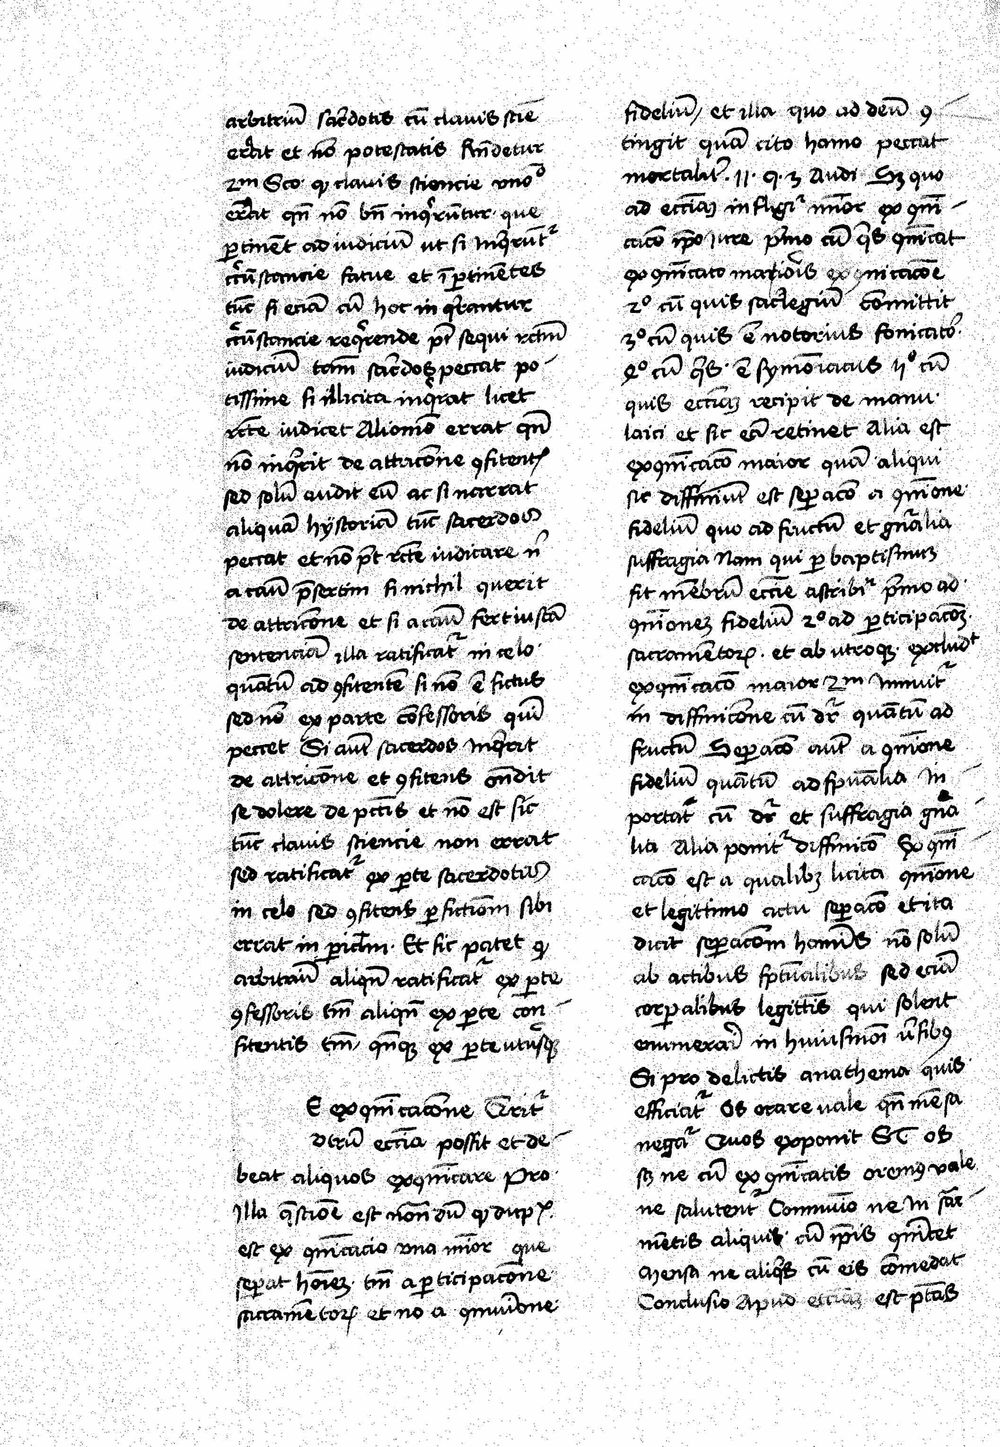 arbitriū sac̄dotis cū clauis scīe
errat et nō potestatis Rn̄detur
2m Sco· qͥ clauis sciencie vno°
errat qn̄ nō bn̄ inqͥrūntur· que
ꝑtinēt ad iudiciū ut si inqͥrūtʳ
cͥcūstancie fatue et īꝑtinētes
tūc si eciā cū hoc inqͥrantur
cͥcūstancie reqͥrende pt̄ sequi rectū
iudiciū tam̄ sac̄dos peccat po-
tissime si illicita inqͥrat licet
rc̄te iudicet Aliomō errat qn̄
nō inqͥrit de attricōne ꝯfitentꝭ
sed solū audit eū ac si narrat
aliquā hystoriā tūc sacerdos
peccat et nō pt̄ rc̄te iudicare n̄
a casu p̄sertim si nichil querit
de attricōne et si a casu fert iustā
sentenciā illa ratificatʳ in celo·
quātū ad ꝯfitentē si nō ē fictus
sed nō ex parte cōfessoris quī
peccet Si aut̄ sacerdos inqͥrit
de attricōne et ꝯfitens ondit
se dolere de pctīs et nō est sic
tūc clauis sciencie non errat
sed ratificatʳ ex ꝑte sacerdotis
in celo sed ꝯfitens ꝑ fictiōm sibi
errat in piclm̄· Et sic patet qͥ
arbitriū aliqn̄ ratificatʳ ex ꝑte
ꝯfessoris tm̄ aliqn̄ ex ꝑte con-
fitentis tm̄ qn̄qꝫ ex ꝑte utriusqꝫ
E exꝯmͥcacōne Qͥritʳ
vtrū ecc̄ia possit et de-
beat aliquos exꝯmͥcare Pro
illa qͣstiōe est notandū qͥ duplꝝ·
est exꝯmͥcacio vna mīor que
seperat hoīem· tm̄ a ꝑticipacōne
sacramētoꝝ et nō a ꝯmuniōne
fideliū, et illa quo ad deū ꝯ-
tingit quā cito homo peccat
mortalitʳ· 11· q· 3 Audi Sꝫ quo
ad ecciāꝫ infligitʳ mīor exꝯmͥ-
cacō ip̄o iure pͥmo cū qͥs ꝯmͥcat
exꝯmͥcato maioris exꝯmͥcacōe
2° cū quis sacͥlegiū cōmittit
3° cū quis ē notorius fornicatoʳ·
4° cū qͥs· ē symoniacus 5° cū
quis ecciāꝫ recipit de manu·
laici et sic eā retinet Alia est
exꝯmͥcacō maior quā aliqui
sic diffiniūt est seꝑacō a ꝯmuīone
fideliū quo ad fructū et gn̄alia
suffragia Nam qui ꝑ baptismuꝫ
fit mēbrū ecc̄ie ascribitʳ pͥmo ad·
ꝯmuīoneꝫ fideliū 2° ad ꝑticipacōeꝫ
sacramētoꝝ· et ab utroqꝫ· excludit
exꝯmͥcacō maior 2m innuitʳ
in diffinicōne cū dr̄ quātū ad
fructū Seꝑacō aut̄ a ꝯmuīone
fideliū quātū ad spūalia in-
portatʳ cū dr̄ et suffragia gn̄a-
lia Alia ponitʳ diffinicō Exꝯmͥ-
cacō est a qualibꝫ licita ꝯmuīone
et legittimo actu seꝑacō et ita
dicit seꝑacōm homīs nō solū
ab actibus sp̄ūalibus sed eciā
corꝑalibus legittīs qui solent
enumerari in huiusmodi vͥsibꝯ
Si pro delictis anathema quis
efficiatʳ Os orare uale ꝯmuīo mēsa
negatʳ Quos exponit ST os
sꝫ ne cū exꝯmͥcatis oremꝯ vale
ne salutentʳ Communio ne in sacͣ-
mētis aliquis cū ip̄is ꝯmͥcet
Mensa ne aliqͥs cū eis comedat
Conclusio Apud ecciāꝫ est ptās